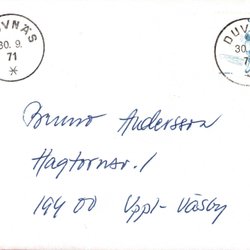 UVNÄS
30. 9.
71
DUV
30.
7
Bruno Andersson
Hagtornsv. 1
194 00 Uppl-Väsby